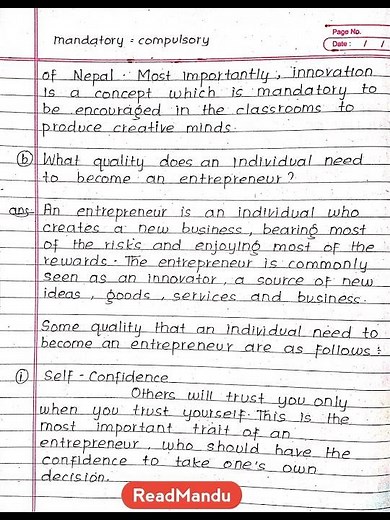 Page No.
Date : / /
mandatory = compulsory
of Nepal. Most importantly, innovation
is a concept which is mandatory to
be encouraged in the classrooms to
produce creative minds.
(b) What quality does an individual need
to become an entrepreneur?
ans- An entrepreneur is an individual who
creates a new business, bearing most
of the risks and enjoying most of the
rewards. The entrepreneur is commonly
seen as an innovator, a source of new
ideas, goods, services and business.
Some quality that an individual need to
become an entrepreneur are as follows:
(i) Self-Confidence
Others will trust you only
when you trust yourself. This is the
most important trait of an
entrepreneur, who should have the
confidence to take one's own
decision.
ReadMandu